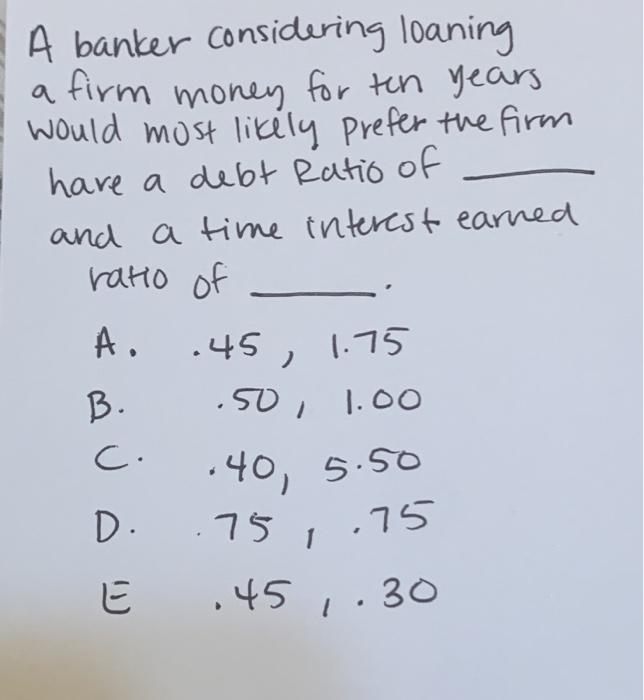 A banker considering loaning
a firm money for ten years
would most likely prefer the firm
have a debt Ratio of ______
and a time interest earned
ratio of ______.
A. .45, 1.75
B. .50, 1.00
C. .40, 5.50
D. .75, .75
E .45, .30